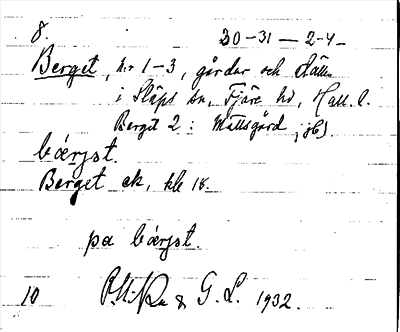 8. 30-31-2-4-
Berget, nr 1-3, gårdar och slätt
i Släps sn, Fjäre hd, Hall. l.
Berget 2: Mattsgård, jb).
bærjət.
Berget ek, kk 18.
pa bærjət.
10 & G. L. 1932.